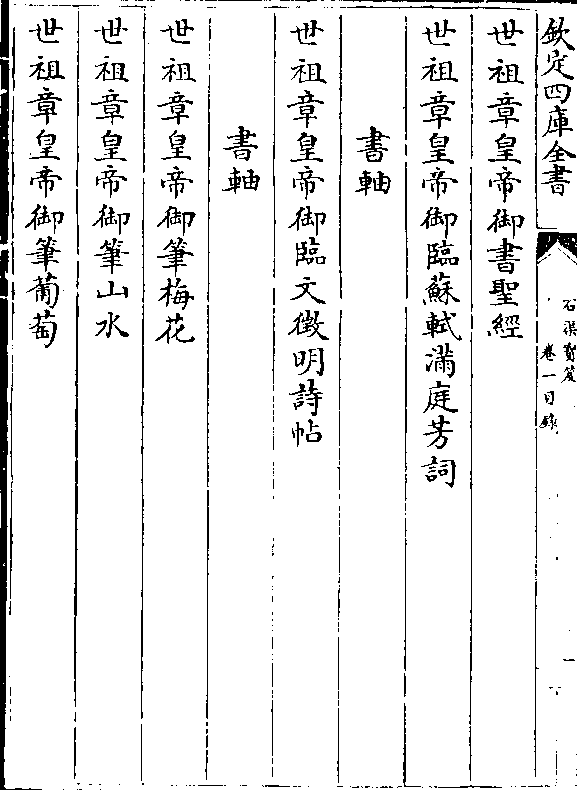 欽定四庫全書
石渠寳笈
卷一目錄
世祖章皇帝御書聖經
世祖章皇帝御臨蘇軾滿庭芳詞
書軸
世祖章皇帝御臨文徴明詩帖
書軸
世祖章皇帝御筆梅花
世祖章皇帝御筆山水
世祖章皇帝御筆葡萄